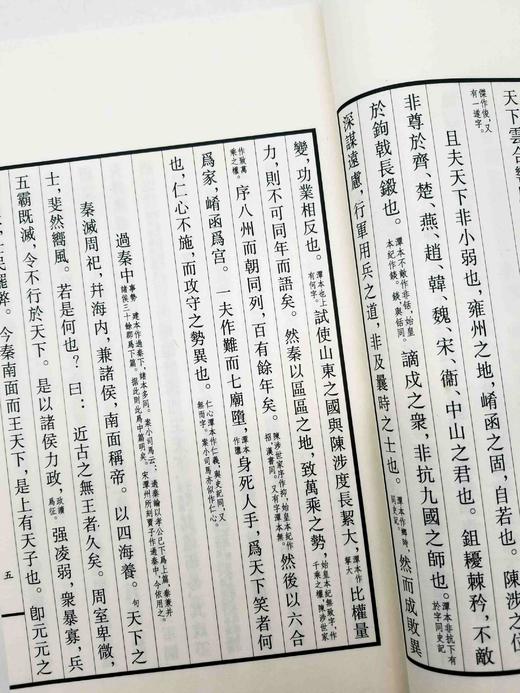 天下雲合響
傑作俊，又
有一遂字。
且夫天下非小弱也，雍州之地，崤函之固，自若也。陳涉之位，
非尊於齊、楚、燕、趙、韓、魏、宋、衞、中山之君也。鉏櫌棘矜，不敵
於鉤戟長鎩也。
潭本不敵作非銛，始皇
本紀作錟。錟與銛同。
讁戍之衆，非抗九國之師也。
潭本非抗下有
於字同史記
深謀遠慮，行軍用兵之道，非及曩時之士也。
潭本作鄉時，
同史記
然而成敗異
變，功業相反也。
潭本也上
有何字。
試使山東之國與陳涉度長絜大，
潭本作
挈大
比權量
力，則不可同年而語矣。然秦以區區之地，致萬乘之勢，
始皇本紀無致字，作
千乘之權，陳涉世家
作致萬
乘之權。
序八州而朝同列，百有餘年矣。
陳涉世家序作抑，始皇本紀作
招，漢書同。又有字潭本無。
然後以六合
爲家，崤函爲宮。一夫作難而七廟墮，
潭本
作隳
身死人手，爲天下笑者何
也，仁心不施，而攻守之勢異也。
仁心潭本作仁義，與史記同，又
無而字。案小司馬亦似作仁心。
過秦中
事勢
秦滅周祀，幷海内，兼諸侯，南面稱帝。以四海養。
句
天下之
士，斐然嚮風。若是何也？曰：近古之無王者久矣。周室卑微，
五霸既滅，令不行於天下。是以諸侯力政，
政讀
爲征
强凌弱，衆暴寡，兵
民罷弊。今秦南面而王天下，是上有天子也。卽元元之
五